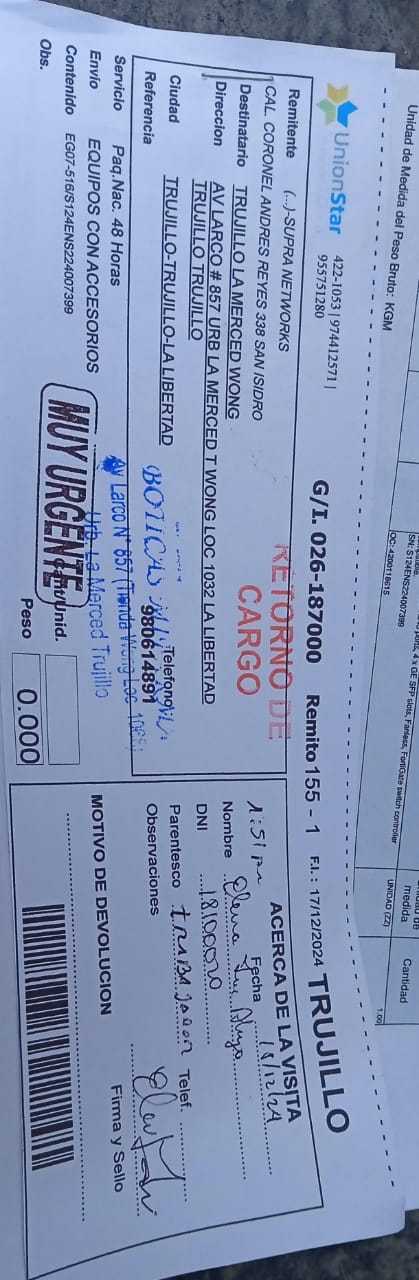 Unidad de Medida del Peso Bruto: KGM
4 x GE SFP slots, Fanless, FortiGate switch controller
SN: S124ENS224007399
OC-4200118615
medida
Cantidad
UNIDAD (ZZ)
1.00
UnionStar
422-1053 | 974412571 |
955751280
G/I. 026-187000 Remito 155 - 1 F.I.: 17/12/2024 TRUJILLO
Remitente (...)-SUPRA NETWORKS
CAL CORONEL ANDRES REYES 338 SAN ISIDRO
Destinatario TRUJILLO LA MERCED WONG
Direccion AV LARCO # 857 URB LA MERCED T WONG LOC 1032 LA LIBERTAD
TRUJILLO TRUJILLO
Ciudad TRUJILLO-TRUJILLO-LA LIBERTAD
Referencia
Telefono
980614891
RETORNO DE
CARGO
BOTICAS
Av Larco N° 857 (Tienda Wong Loc
Urb. La Merced Trujillo
Servicio Paq.Nac. 48 Horas
Envio EQUIPOS CON ACCESORIOS
Contenido EG07-516/S124ENS224007399
Obs.
MUY URGENTE
Cant/Unid.
Peso 0.000
ACERCA DE LA VISITA
1:51 pm Fecha 18/12/24
Nombre Elena
DNI 18100020
Parentesco Telef.
Observaciones
Firma y Sello
MOTIVO DE DEVOLUCION